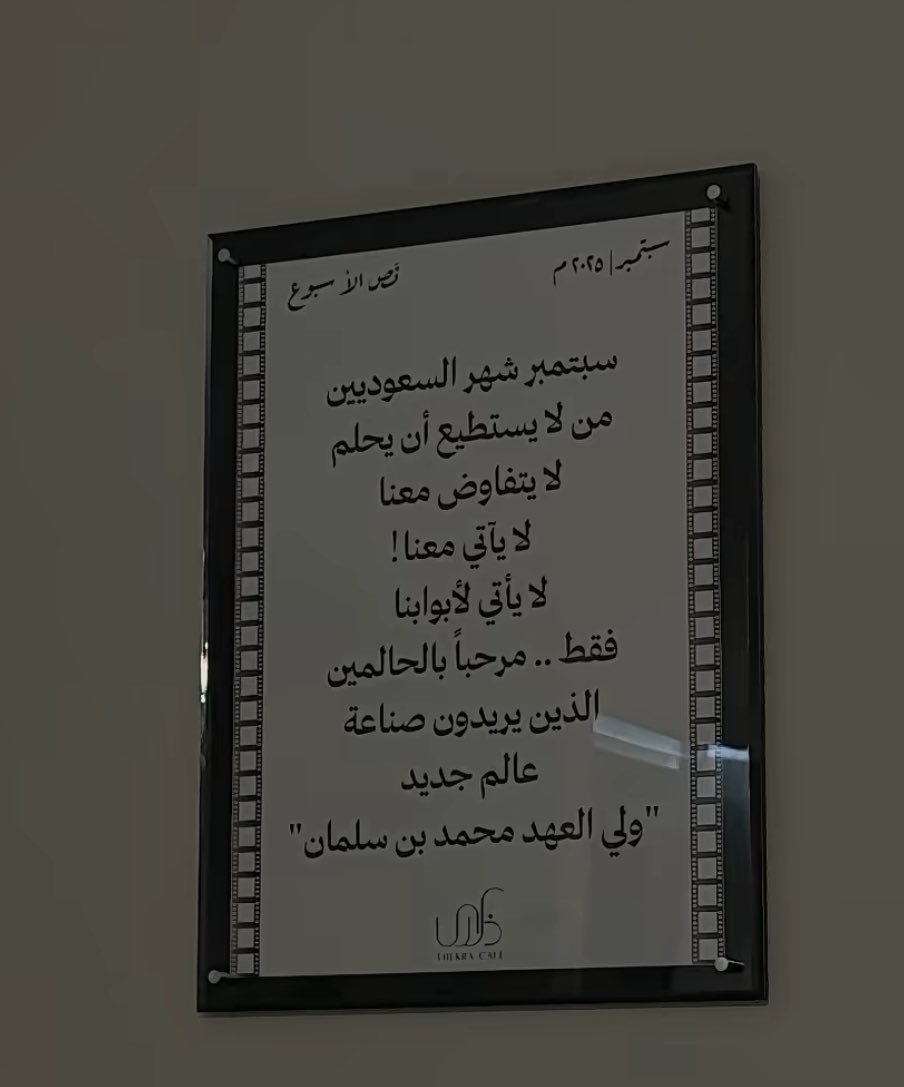 سبتمبر | ٢٠٢٥ م
نَص الأسبوع
سبتمبر شهر السعوديين
من لا يستطيع أن يحلم
لا يتفاوض معنا
لا يآتي معنا!
لا يأتي لأبوابنا
فقط .. مرحباً بالحالمين
الذين يريدون صناعة
عالم جديد
"ولي العهد محمد بن سلمان"
CAFE